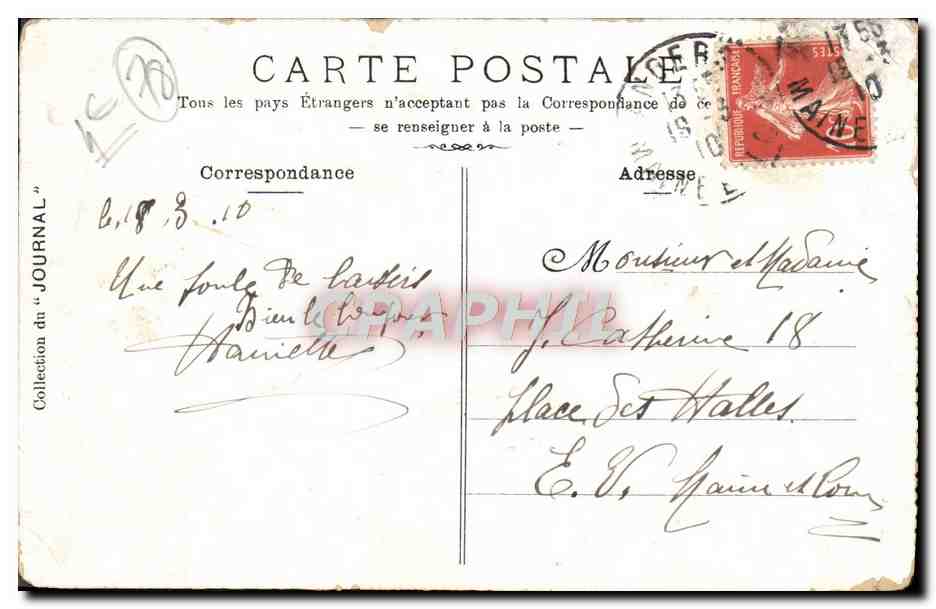 CARTE POSTALE
Tous les pays Étrangers n'acceptant pas la Correspondance de ce
— se renseigner à la poste —
Correspondance
Adresse
Collection du "JOURNAL"
18
le 18.3.10
Une foule de baisers
bien
Monsieur et Madame
J. Catherine 18
place des Halles.
E. V. Maine et Loire
RÉPUBLIQUE FRANÇAISE
POSTES
10
ANGERS
MAINE
CPAPHIL